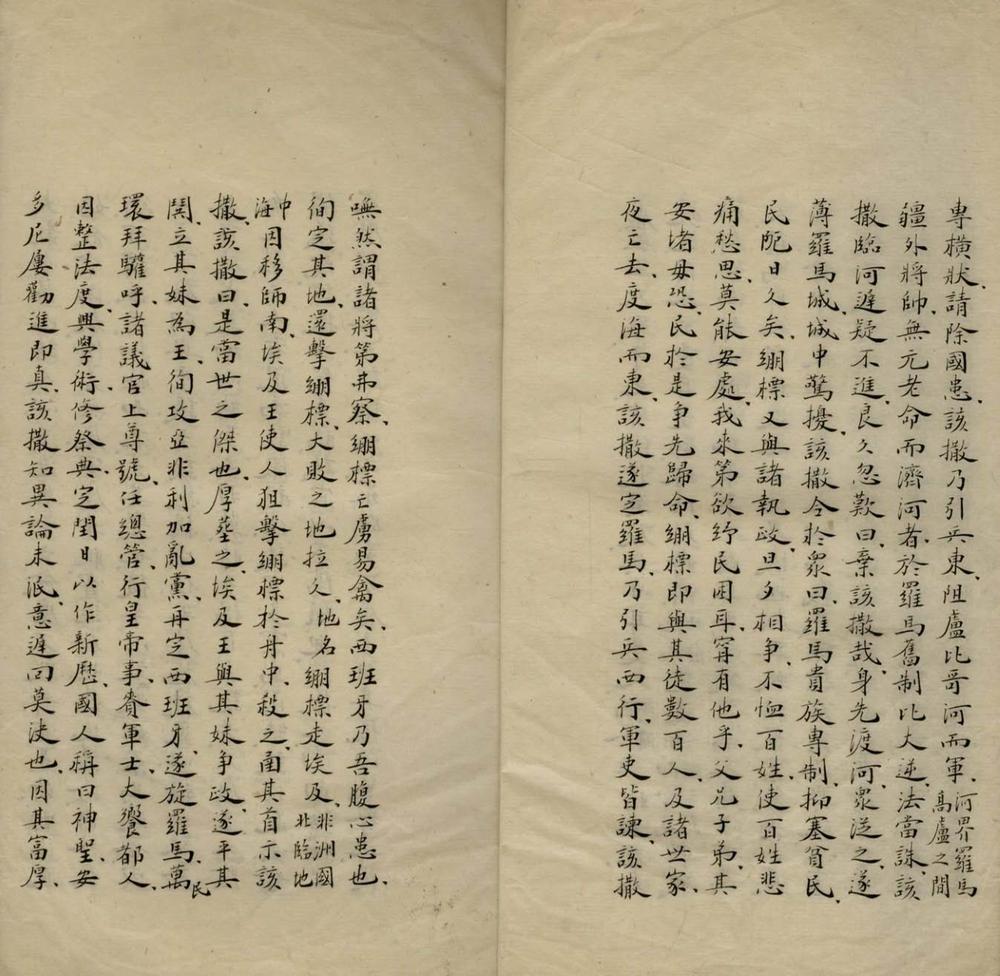 專橫狀請除國患該撒乃引兵東阻盧比哥河而軍河界羅馬高盧之間
疆外將帥無元老命而濟河者於羅馬舊制比大逆法當誅該
撒臨河遲疑不進良久忽歎曰棄該撒哉身先渡河眾從之遂
薄羅馬城城中驚擾該撒令於眾曰羅馬貴族專制抑塞貧民
民阨日久矣綳標又與諸執政旦夕相爭不恤百姓使百姓悲
痛愁思莫能安處我來第欲紓民困耳甯有他乎父兄子弟其
安堵毋恐民於是爭先歸命綳標即與其徒數百人及諸世家
夜亡去度海而東該撒遂定羅馬乃引兵西行軍吏皆諫該撒
嘸然謂諸將第弗察綳標亡虜易禽矣西班牙乃吾腹心患也
徇定其地還擊綳標大敗之地拉久地名綳標走埃及非洲國北臨地
中海因移師南埃及王使人狙擊綳標於舟中殺之函其首示該
撒該撒曰是當世之傑也厚塟之埃及王與其妹爭政遂平其
鬨立其妹為王徇攻亞非利加亂黨再定西班牙遂旋羅馬萬民
環拜驩呼諸議官上尊號任總管行皇帝事賚軍士大饗都人
因整法度興學術修祭典定閏日以作新歷國人稱曰神聖安
多尼屢勸進即真該撒知異論未泯意遲回莫決也因其富厚